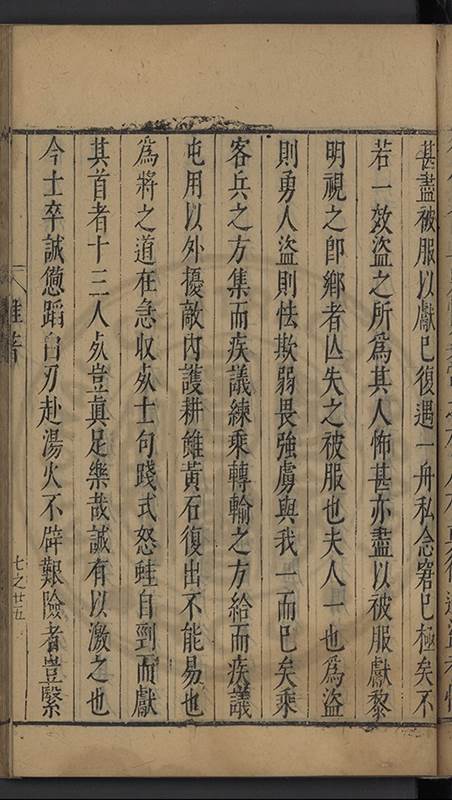 甚盡被服以獻已復遇一舟私念窘已極矣不
若一效盜之所為其人怖甚亦盡以被服獻黎
明視之卽鄉者亾失之被服也夫人一也為盜
則勇人盜則怯欺弱畏強虜與我一而已矣乘
客兵之方集而疾議練乘轉輸之方給而疾議
屯用以外擾敵內護耕雖黃石復出不能易也
為將之道在急收㱙士句踐式怒蛙自剄而獻
其首者十三人㱙豈眞足樂哉誠有以激之也
今士卒誠憊蹈白刃赴湯火不辟艱險者豈繄
雜著
七之廿五